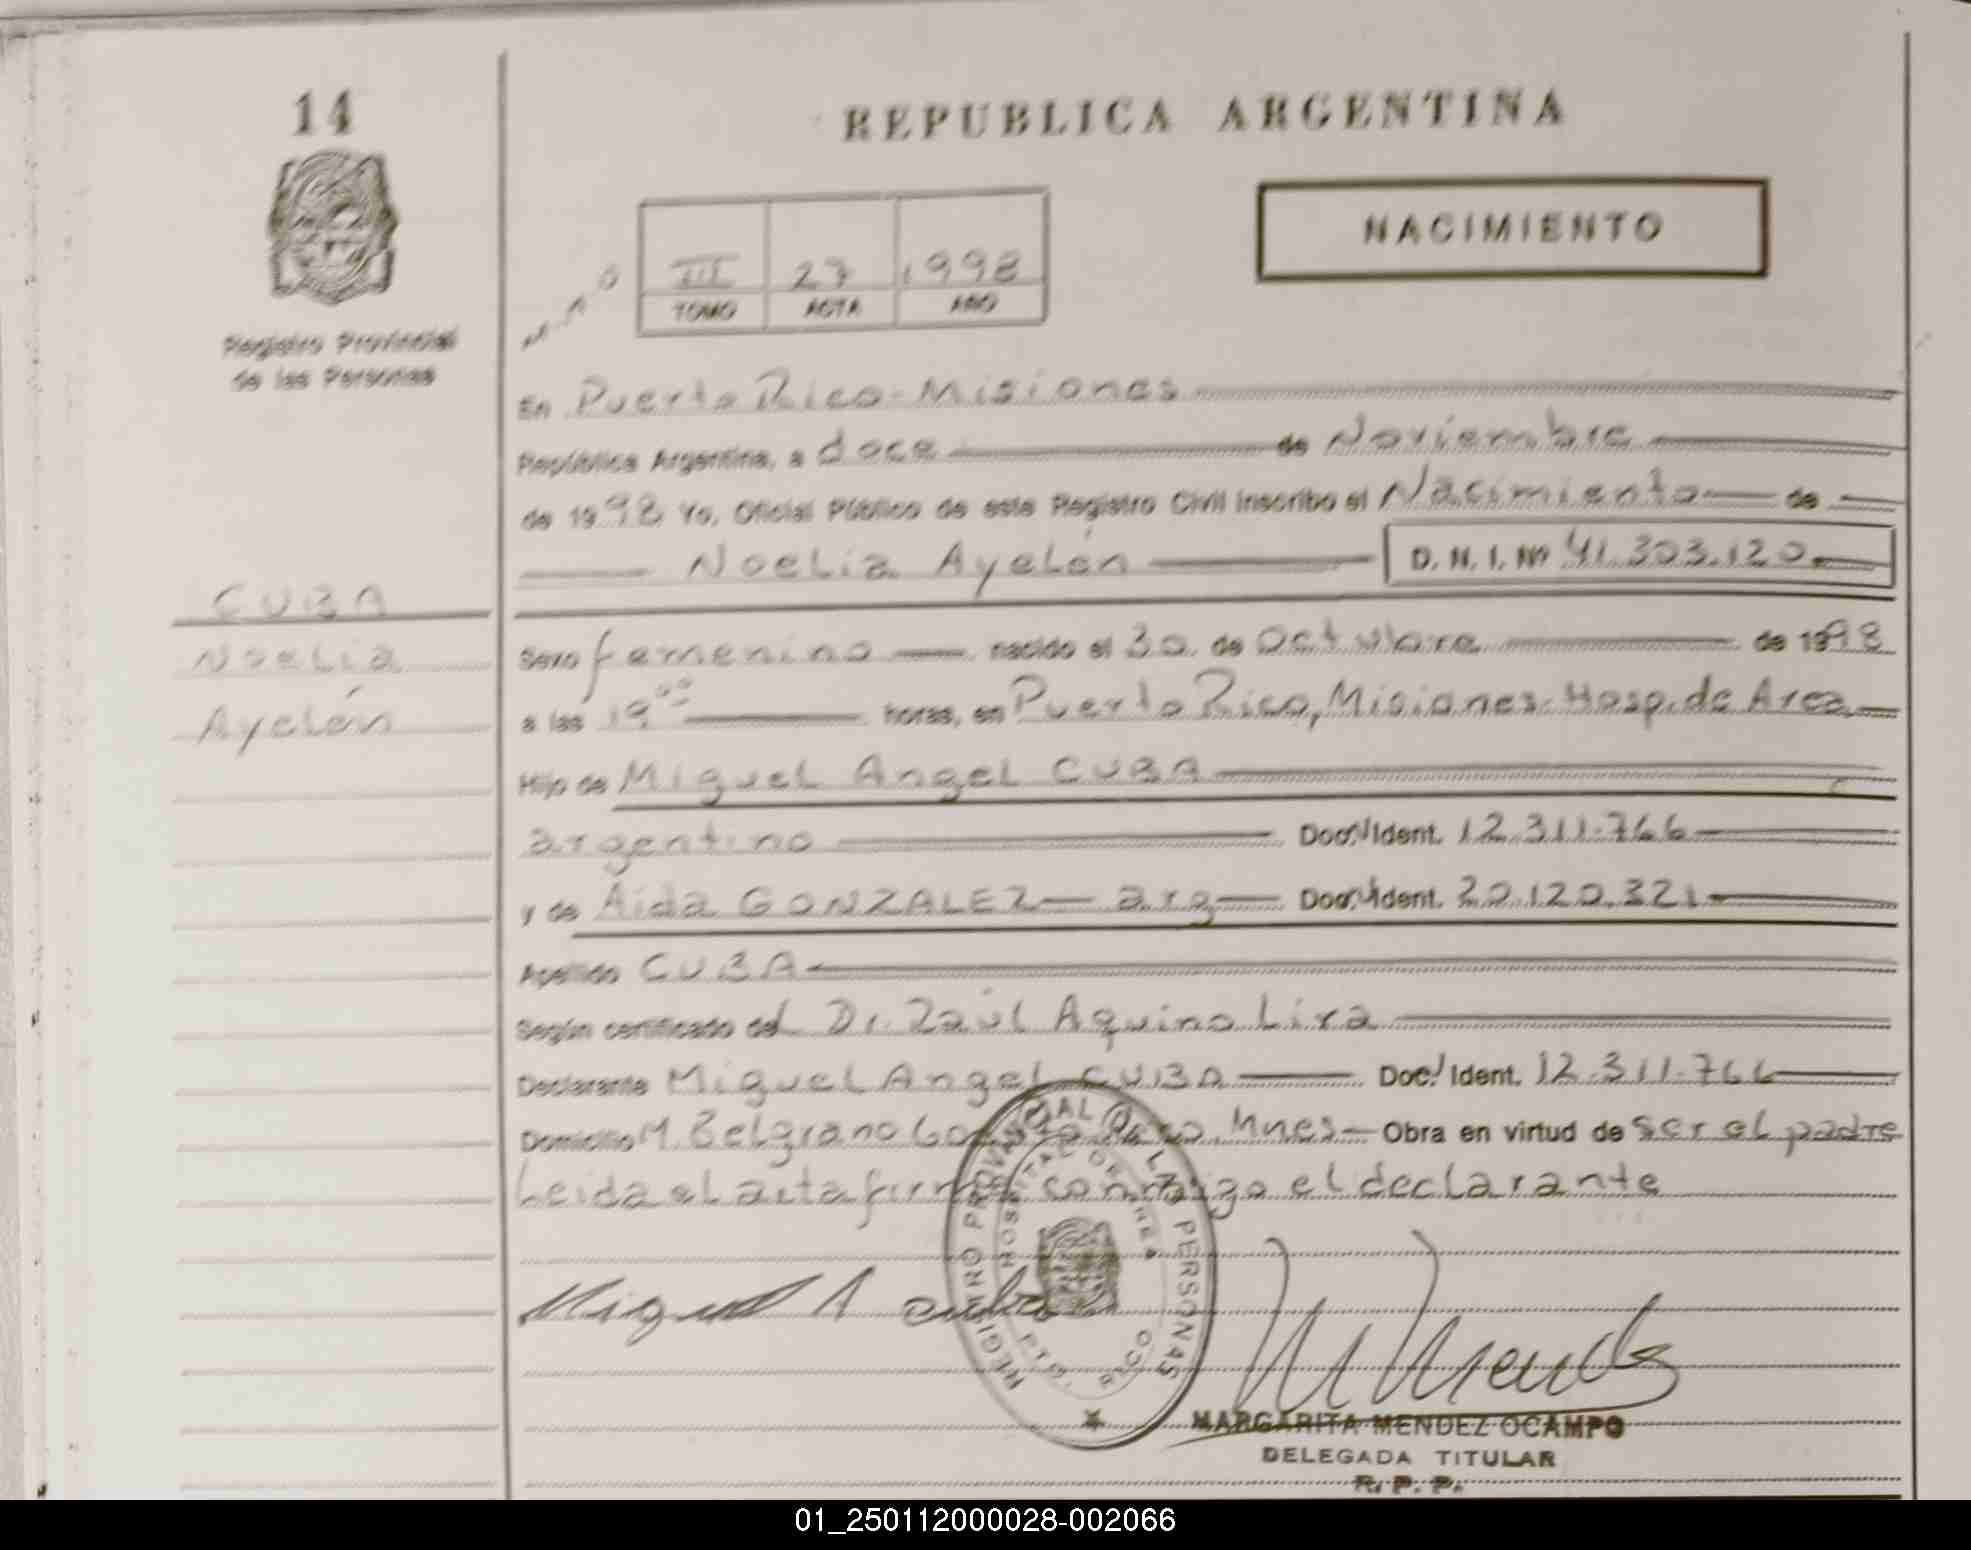 14
REPUBLICA ARGENTINA
NACIMIENTO
III 27 1998
TOMO ACTA AÑO
Registro Provincial
de las Personas
En Puerto Rico - Misiones
República Argentina, a doce de Noviembre
de 1998 Yo, Oficial Público de este Registro Civil inscribo el Nacimiento de
Noelia Ayelén D. N. I. Nº 41.303.120
CUBA
Noelia
Ayelén
Sexo femenino nacido el 30 de Octubre de 1998
a las 19 00 horas, en Puerto Rico, Misiones-Hosp. de Area
Hijo de Miguel Angel CUBA
argentino Doc. Ident. 12.311.766
y de Aida GONZALEZ - arg Doc. Ident. 20.120.321
Apellido CUBA
Según certificado del Dr. Raúl Aquino Lira
Declarante Miguel Angel CUBA Doc. Ident. 12.311.766
Domicilio M. Belgrano Mnes Obra en virtud de ser el padre
Leida el acta firma conmigo el declarante
REGISTRO PROVINCIAL DE LAS PERSONAS
HOSPITAL DE AREA
PTO. RICO
Miguel A Cuba
M Mendez
MARGARITA MENDEZ OCAMPO
DELEGADA TITULAR
R. P. P.
01_250112000028-002066